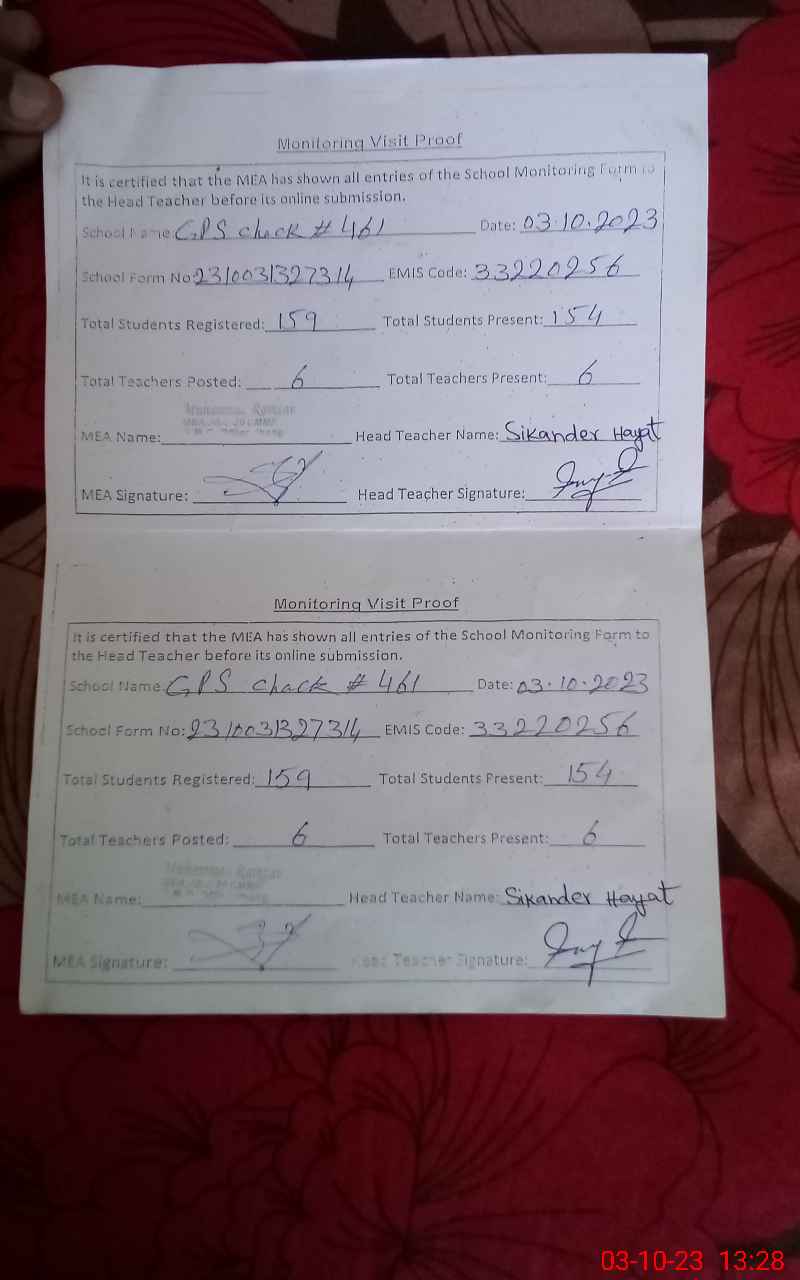 Monitoring Visit Proof
It is certified that the MEA has shown all entries of the School Monitoring Form to
the Head Teacher before its online submission.
School Name: GPS chack # 461 Date: 03.10.2023
School Form No: 2310031327314 EMIS Code: 33220256
Total Students Registered: 159 Total Students Present: 154
Total Teachers Posted: 6 Total Teachers Present: 6
MEA Name: Head Teacher Name: Sikander Hayat
MEA Signature: Head Teacher Signature:
Monitoring Visit Proof
It is certified that the MEA has shown all entries of the School Monitoring Form to
the Head Teacher before its online submission.
School Name: GPS chack # 461 Date: 03.10.2023
School Form No: 2310031327314 EMIS Code: 33220256
Total Students Registered: 159 Total Students Present: 154
Total Teachers Posted: 6 Total Teachers Present: 6
MEA Name: Head Teacher Name: Sikander Hayat
MEA Signature: Head Teacher Signature:
03-10-23 13:28